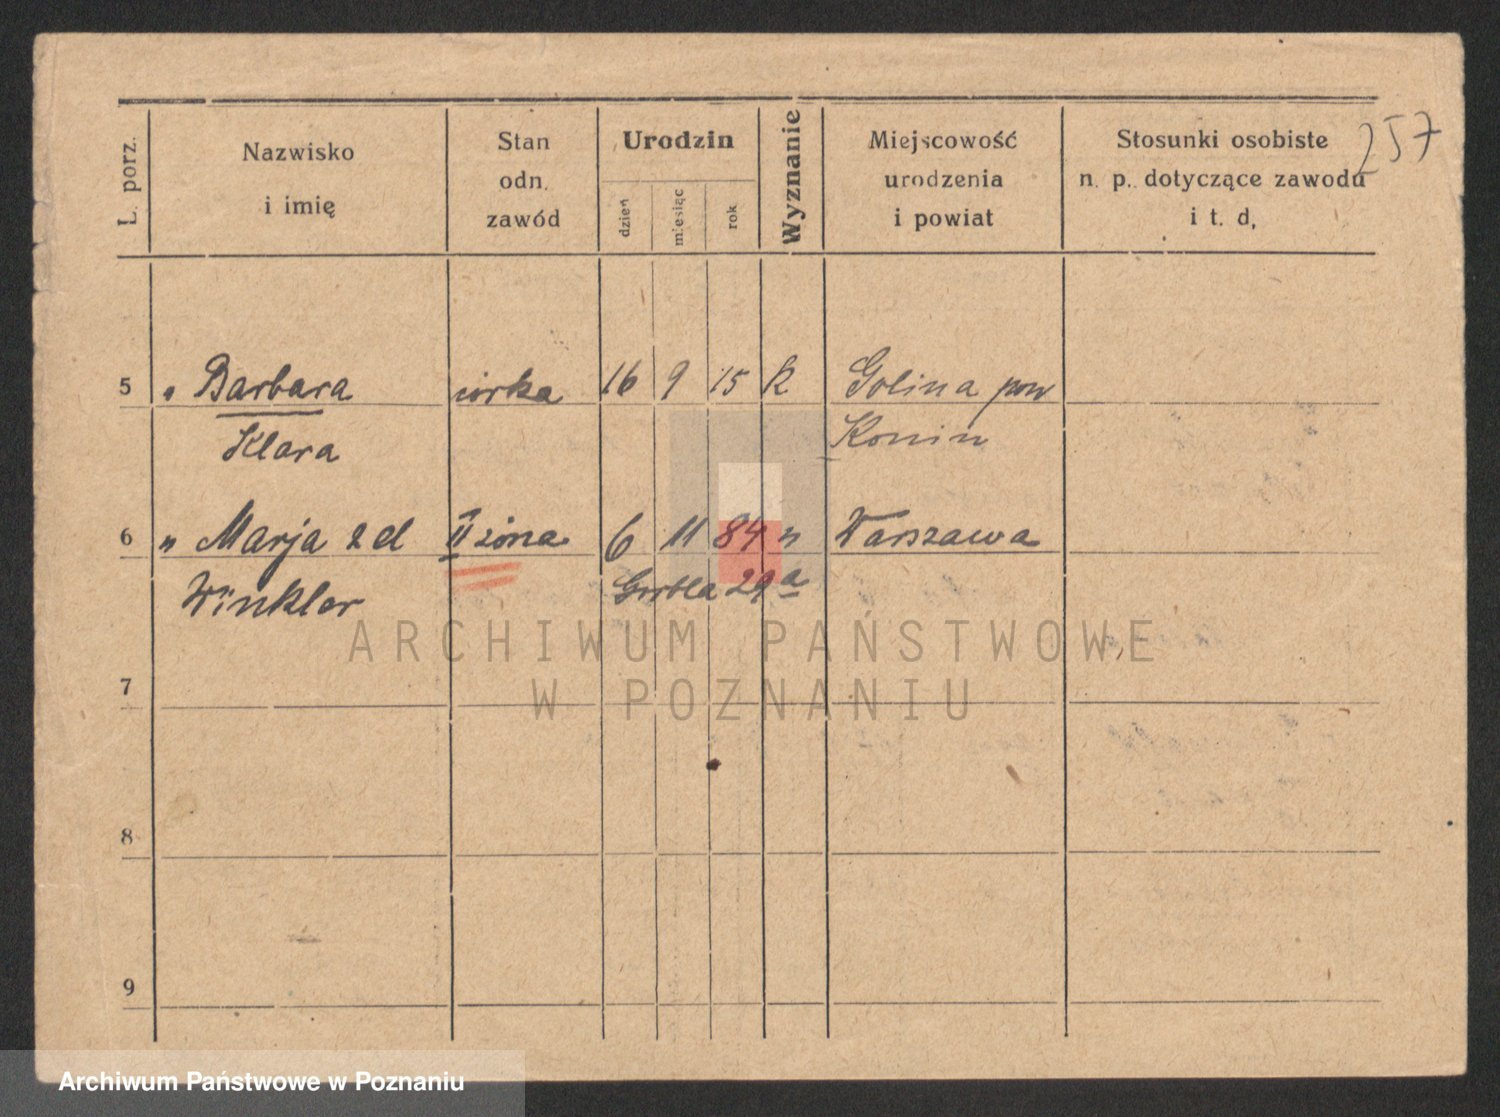 257
L. porz.
Nazwisko
i imię
Stan
odn.
zawód
Urodzin
dzień
miesiąc
rok
Wyznanie
Miejscowość
urodzenia
i powiat
Stosunki osobiste
n. p. dotyczące zawodu
i t. d,
5 " Barbara córka 16 9 15 k Golina pow
Klara Konin
6 " Marja 2d II żona 6 11 84 " Warszawa
Winkler 29a
ARCHIWUM PAŃSTWOWE
W POZNANIU
7
8
9
Archiwum Państwowe w Poznaniu